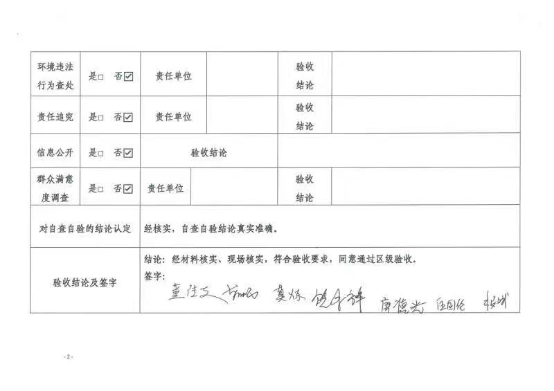 环境违法
行为查处
是□ 否☑
责任单位
验收
结论
责任追究
是□ 否☑
责任单位
验收
结论
信息公开
是□ 否☑
验收结论
验收
结论
群众满意
度调查
是□ 否☑
责任单位
验收
结论
对自查自验的结论认定
经核实，自查自验结论真实准确。
验收结论及签字
结论：经材料核实、现场核实，符合验收要求，同意通过区级验收。
签字：
-2-